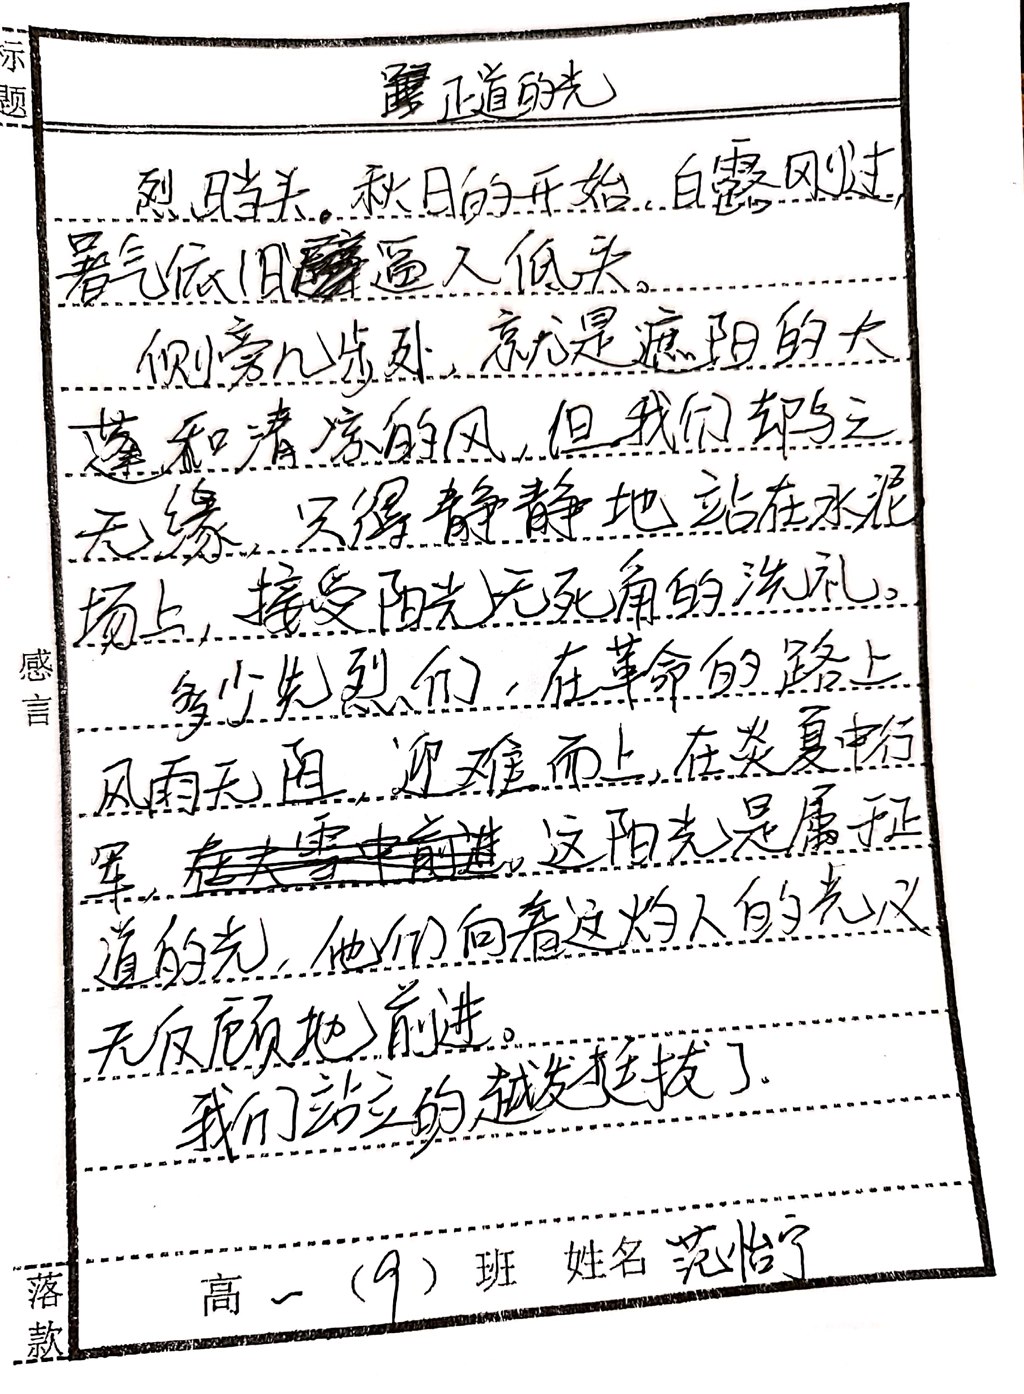 标题
正道的光
烈日当头。秋日的开始,白露刚过,
暑气依旧逼人低头。
侧旁几步处,就是遮阳的大
蓬和清凉的风,但我们却与之
无缘,只得静静地站在水泥
场上,接受阳光无死角的洗礼。
感言
多少先烈们,在革命的路上
风雨无阻,迎难而上,在炎夏中行
军,在大雪中前进。这阳光是属于正
道的光,他们向着这灼人的光义
无反顾地前进。
我们站立的越发挺拔了.
落款
高一(9)班 姓名 范怡宁